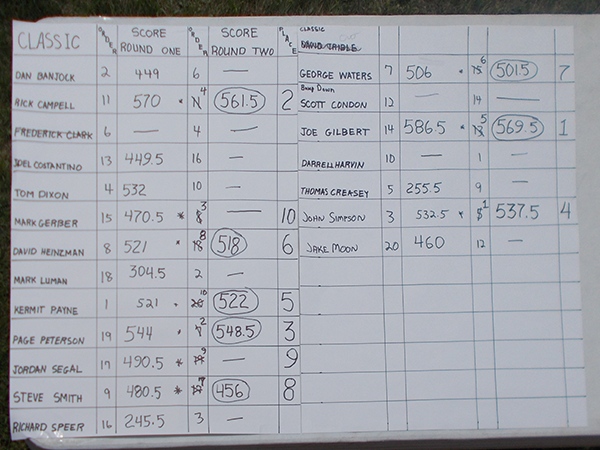 CLASSIC ORDER SCORE ROUND ONE ORDER SCORE ROUND TWO PLACE
DAN BANJOCK 2 449 6 —
RICK CAMPELL 11 570 * 4 561.5 2
FREDERICK CLARK 6 — 4 —
JOEL COSTANTINO 13 449.5 16 —
TOM DIXON 4 532 10 —
MARK GERBER 15 470.5 * 3 8 — 10
DAVID HEINZMAN 8 521 * 8 18 518 6
MARK LUMAN 18 304.5 2 —
KERMIT PAYNE 1 521 • 10 20 522 5
PAGE PETERSON 19 544 • 2 548.5 3
JORDAN SEGAL 17 490.5 * 9 — 9
STEVE SMITH 9 480.5 * 7 456 8
RICHARD SPEER 16 245.5 3 —
CLASSIC
DAVID TRIPLE
GEORGE WATERS 7 506 • 6 15 501.5 7
Bump Down
SCOTT CONDON 12 — 14 —
JOE GILBERT 14 586.5 * 5 18 569.5 1
DARRELL HARVIN 10 — 1 —
THOMAS CREASEY 5 255.5 9 —
JOHN SIMPSON 3 532.5 * 1 537.5 4
JAKE MOON 20 460 12 —